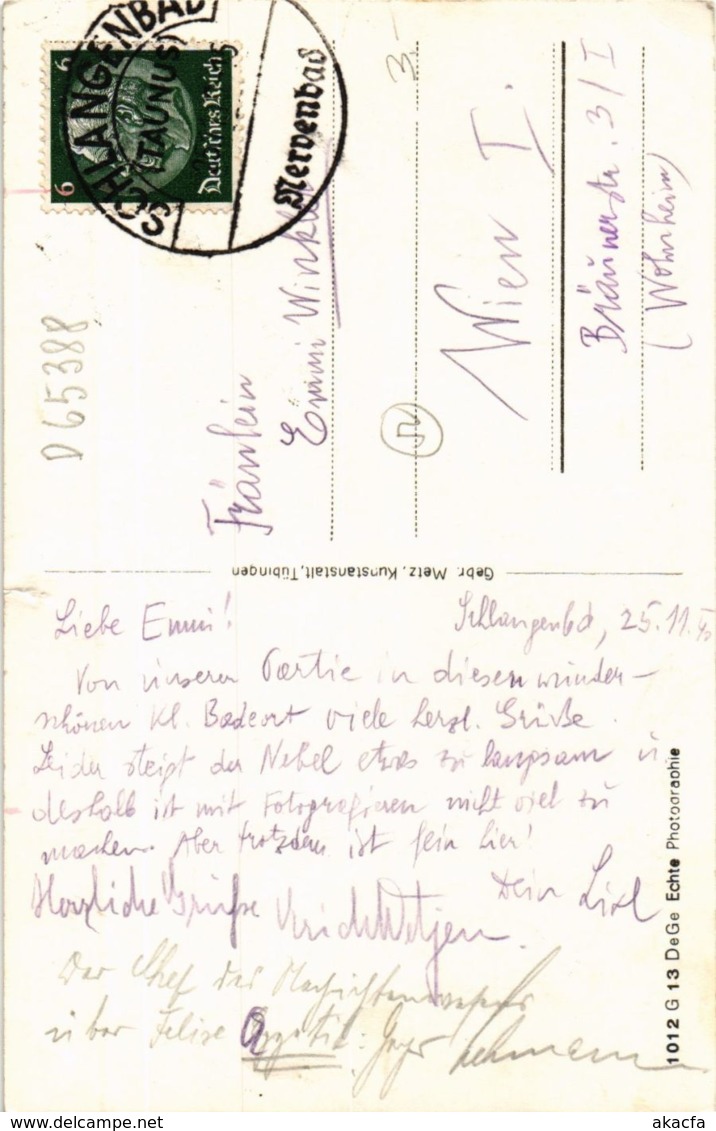 SCHLANGENBAD
(TAUNUS)
Nervenbad
6 6
Deutsches Reich
3.-
Fräulein
Emmi Winkler
Wien I.
Bräunerstr. 3/I
(Wohnheim)
D 65388
Gebr. Metz, Kunstanstalt, Tübingen
Schlangenbd, 25.11.
Liebe Emmi!
Von unserer Partie in diesen wunder-
schönen kl. Badeort viele herzl. Grüße.
Leider steigt der Nebel etwas zu langsam u
deshalb ist mit Fotografieren nicht viel zu
machen. Aber trotzdem ist fein hier!
Dein Lisl
Herzliche Grüße
Der Chef des Nachichtenwesens
Lehmann
1012 G 13 DeGe Echte Photographie
delcampe.net
akacfa